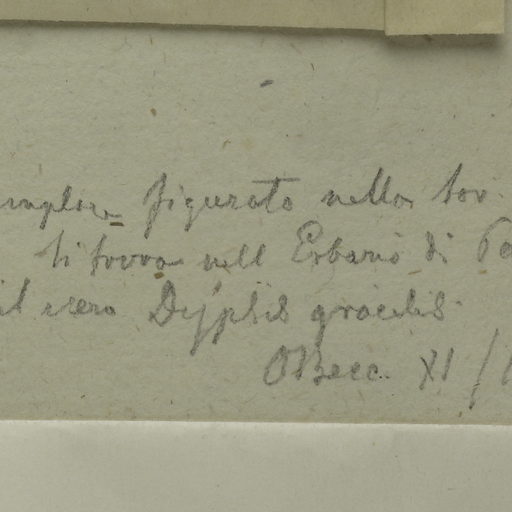 figurato nella tav.
si trova nell Erbario di Pa
il vero Dypsis gracilis.
OBecc. XI/